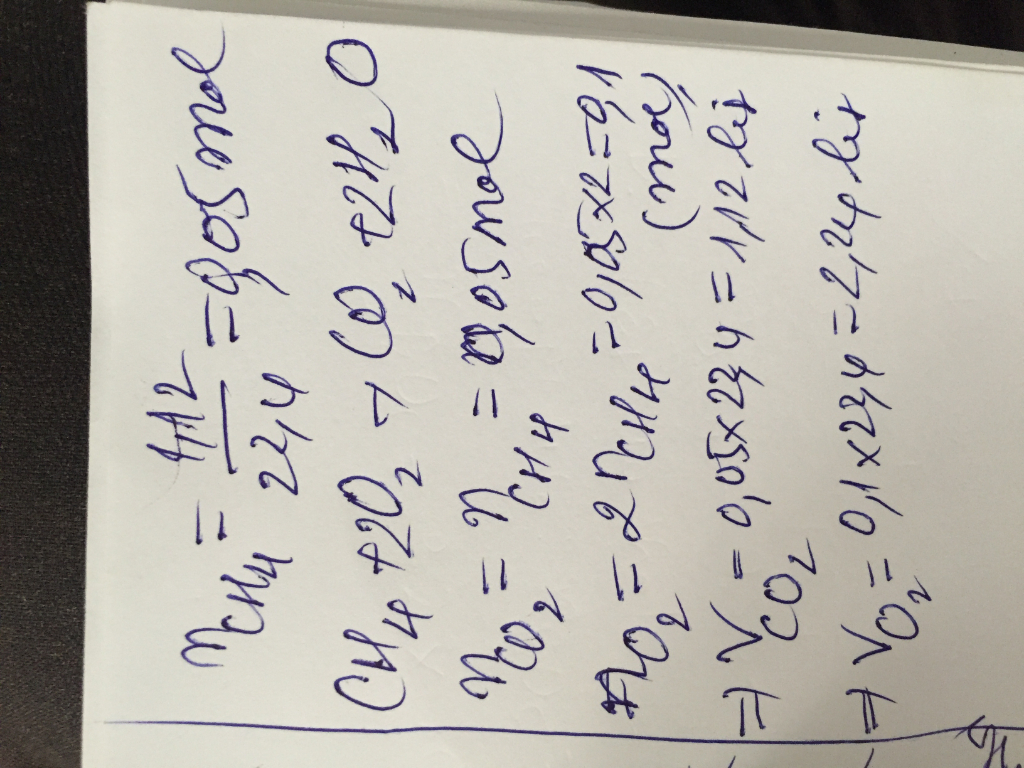 nCH₄ = 1,12/22,4 = 0,05 mol
CH₄ + 2O₂ → CO₂ + 2H₂O
nCO₂ = nCH₄ = 0,05 mol
nO₂ = 2nCH₄ = 0,05x2 = 0,1
(mol)
⇒ VCO₂ = 0,05x22,4 = 1,12 lit
⇒ VO₂ = 0,1 x 22,4 = 2,24 lit